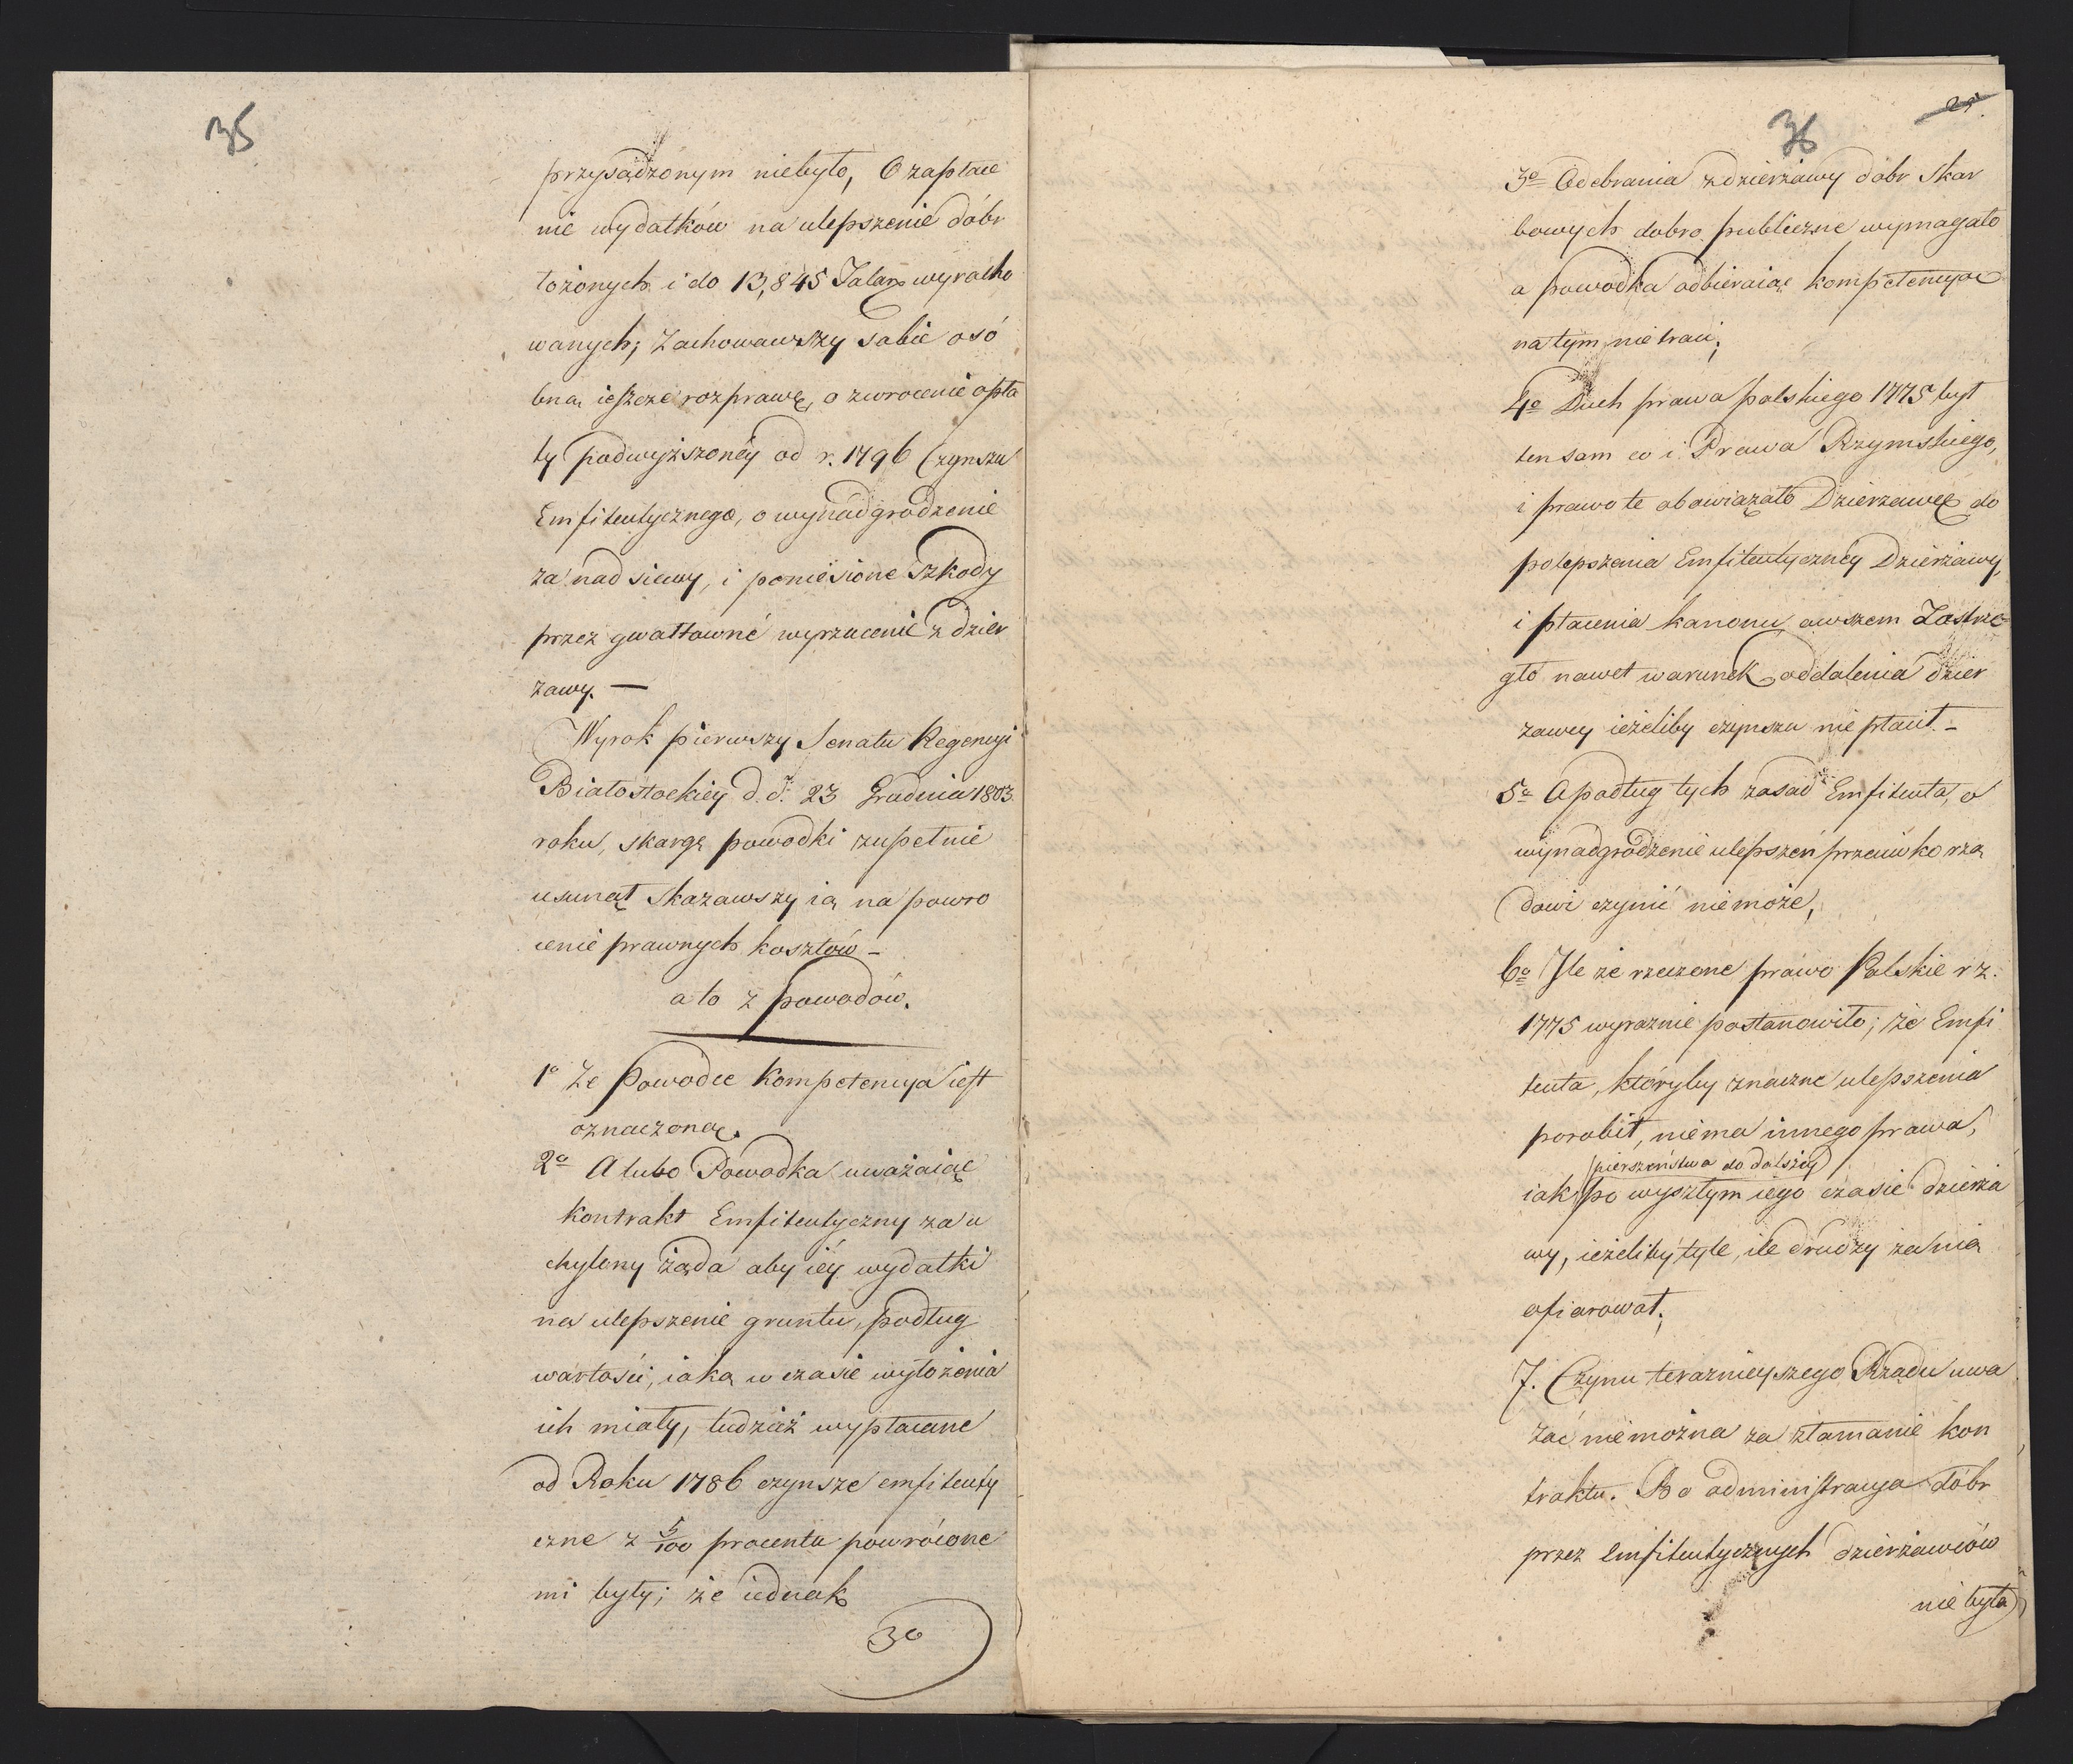 35
przysądzonym niebyło, O zapłace
nie wydatków na ulepszenie dóbr
łożonych i do 13,845 Talar wyracho
wanych; Zachowawszy sobie osó
bną ieszcze rozprawę, o zwrocenie opła
ty podwyższonéy od r. 1796 Czynszu
Emfiteutycznego, o wynadgrodzenie
za nad siewy, i poniesione Szkody
przez gwałtowné wyrzucenie z dzier
żawy. —
Wyrok pierwszy Senatu Regencyi
Białostockiey d. d. 23 Grudnia 1803
roku, skargę powodki zupełnie
usunął skazawszy ią na powro
cenie prawnych kosztów –
a to z powodów.
1o Że Powodce Kompetencya iest
oznaczoną.
2o A lubo Powodka uważaiąc
kontrakt Emfiteutyczny za u
chylony żąda aby iéy wydatki
na ulepszenie gruntu, podług
wartości, iaką w czasie wyłożenia
ich miały, tudzież wypłacane
od Roku 1786 czynsze emfiteuty
czne z 5/100 procentu powrócone
mi były; że iednak
3o
25.
36
3o Odebrania z dzierżawy dóbr Skar
bowych dobro publiczne wymagało
a powodka odbieraiąc kompetencyą
na tym nie traci;
4o Duch prawa polskiego 1775 był
ten sam co i Prawa Rzymskiego,
i prawo te obowiązało Dzierżawcę do
polepszenia Emfiteutycznéy Dzierżawy,
i płacenia kanonu owszem Zastrze
gło nawet warunek oddalenia dzier
żawcy ieżeliby czynszu nie płacił. –
5o A podług tych zasad Emfiteuta, o
wynadgrodzenie ulepszeń przeciwko rzą
dowi czynić niemoże,
6o Ile że rzeczone prawo Polskie r z.
1775 wyraznie postanowiło; że Emfi
teuta, któryby znaczne ulepszenia
porobił, niema innego prawa,
pierszeństwa do dalszéy
iak po wyszłym iego czasie dzierża
wy, ieżeliby tyle, ile drudzy za nią
ofiarował;
7. Czynu teraznieyszego Rządu uwa
żać niemożna za złamanie kon
traktu. Bo administracya dóbr
przez Emfiteutycznych dzierżawców
nie była